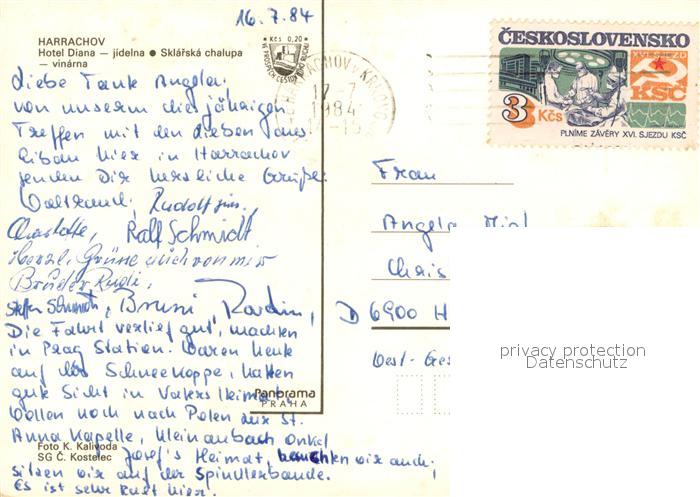 16.7.84
HARRACHOV
Hotel Diana — jídelna ● Sklářská chalupa
— vinárna
Kčs 0,20
Liebe Tante Angela,
von unserem diesjährigen
Treffen mit den Lieben aus
hier in Harrachov
senden Dir herzliche Grüße
Waltraud, Rudolf jun.
Charlotte, Ralf Schmidt
Herzl. Grüße auch von mir
Bruder Rudi,
Stefan Schmidt, Bruni,
Die Fahrt verlief gut, machten
in Prag Station. Waren heute
auf der Schneekoppe, hatten
gute Sicht in Vaters Heimat
Wollen noch nach Polen zur St.
Anna Kapelle, Kleinaubach Onkel
Josef's Heimat, wir auch,
sitzen wir auf der Spindlerbaude.
Es ist sehr kalt hier.
Panorama
PRAHA
Foto K. Kalivoda
SG Č. Kostelec
HARRACHOV
17.-7.
1984
ČESKOSLOVENSKO
XVI. SJEZD
KSČ
3 Kčs
PLNÍME ZÁVĚRY XVI. SJEZDU KSČ
Frau
Angela
D 6900 H
West-Ger
privacy protection
Datenschutz